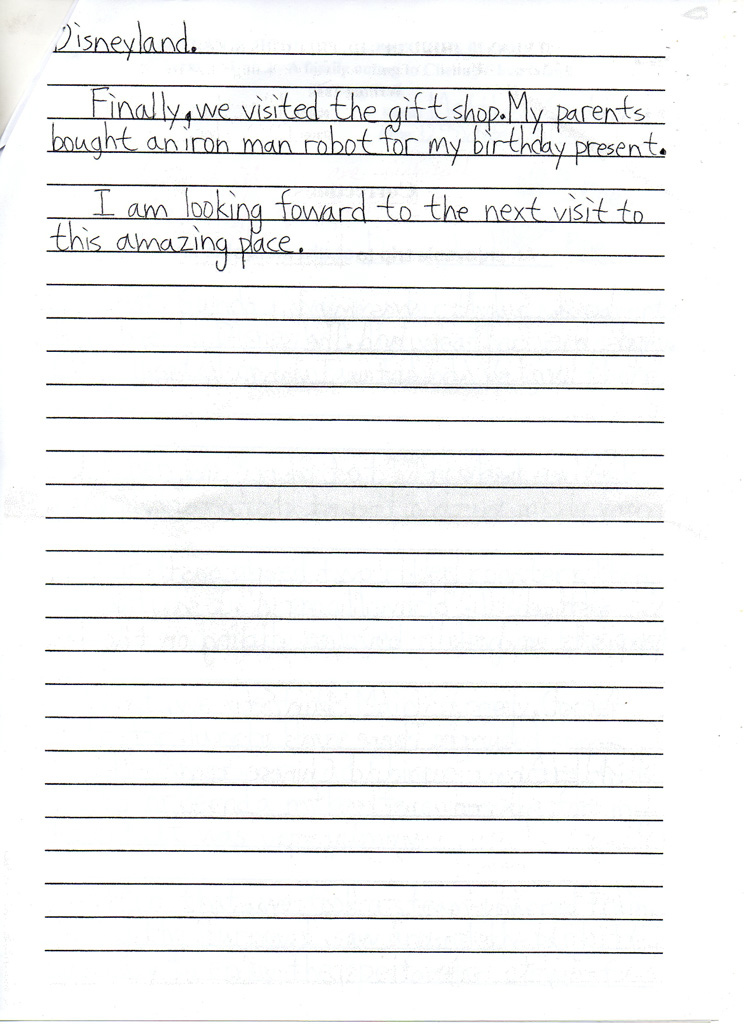 Disneyland.
Finally, we visited the gift shop. My parents
bought an iron man robot for my birthday present.
I am looking foward to the next visit to
this amazing place.